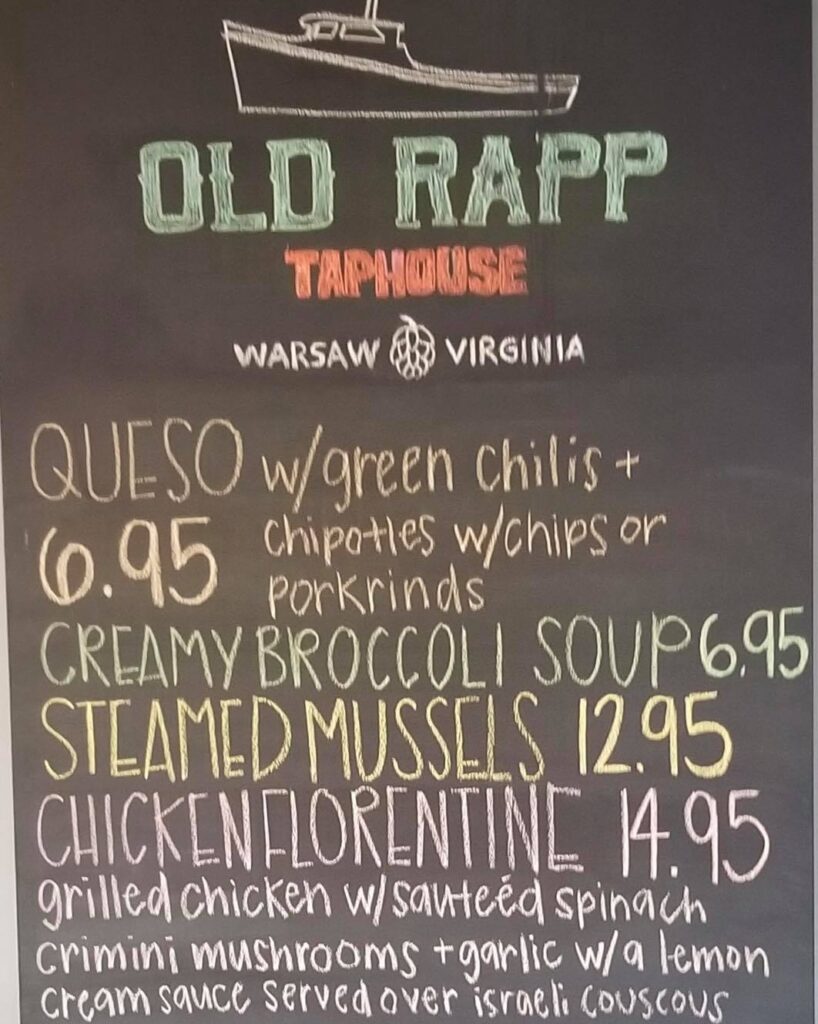 OLD RAPP
TAPHOUSE
WARSAW VIRGINIA
QUESO w/green chilis +
6.95 chipotles w/chips or
porkrinds
CREAMY BROCCOLI SOUP 6.95
STEAMED MUSSELS 12.95
CHICKEN FLORENTINE 14.95
grilled chicken w/sauteéd spinach
crimini mushrooms + garlic w/a lemon
cream sauce served over israeli couscous